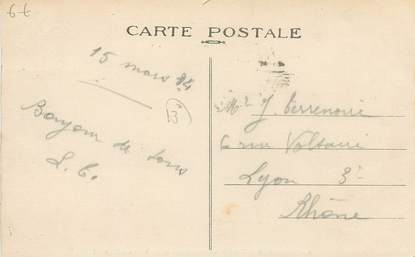 66
CARTE POSTALE
15 mars 34
Bonjour de tous
L. C.
J. Perrenoud
6 rue Voltaire
Lyon 3e
Rhône